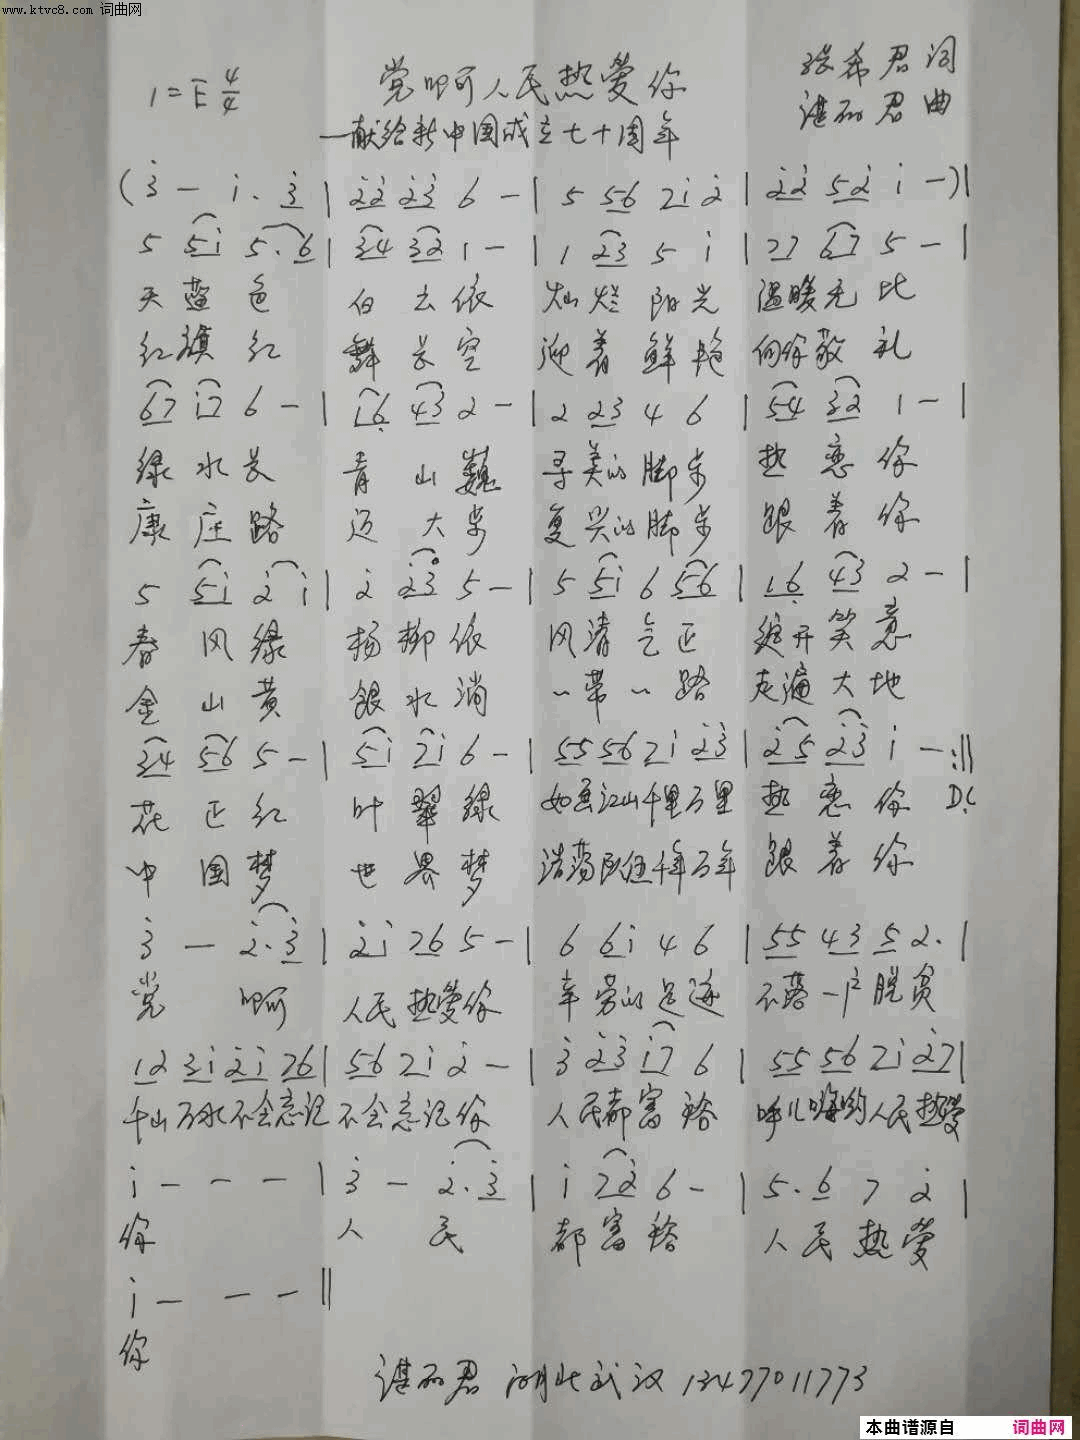 www.ktvc8.com 词曲网
1=E 4/4 党啊人民热爱你 张希君词
—献给新中国成立七十周年 谌丽君曲
(3̇ — i. 3̇ | 2̇2̇ 2̇3̇ 6 — | 5 56 7i 2̇ | 2̇2̇ 52̇ i —)|
5 5i 5.6 | 34 32 1 — | 1 23 5 i | 77 67 5 — |
天蓝色 白云依 灿烂阳光 温暖无比
红旗红 舞长空 迎着鲜艳 向你敬礼
67 i7 6 — | i6 43 2 — | 2 23 4 6 | 54 32 1 — |
绿水长 青山巍 寻美的脚步 热恋你
康庄路 迈大步 复兴的脚步 跟着你
5 5i 2̇ i | 2̇ 2̇3̇ 5 — | 5 5i 6 56 | 16 43 2 — |
春风绿 杨柳依 风清气正 绽开笑意
金山黄 银水淌 一带一路 走遍大地
34 56 5 — | 5i 7i 6 — | 55 56 7i 2̇3̇ | 2̇5 2̇3̇ i — :||
花正红 叶翠绿 如画江山千里万里 热恋你 D.C
中国梦 世界梦 浩荡队伍千年万年 跟着你
3̇ — 2̇.3̇ | 2̇i 76 5 — | 6 6i 4 6 | 55 43 5 2. |
党啊 人民热爱你 辛劳的足迹 不落一户脱贫
12 3i 2̇i 76 | 56 7i 2̇ — | 3̇ 2̇3̇ i7 6 | 55 56 7i 2̇7 |
千山万水不会忘记 不会忘记你 人民都富裕 呼儿嗨哟人民热爱
i — — — | 3̇ — 2̇.3̇ | i 72̇ 6 — | 5.6 7 2̇ |
你 人民 都富裕 人民热爱
i — — — ||
你
谌丽君 湖北武汉 13477011773
本曲谱源自 词曲网